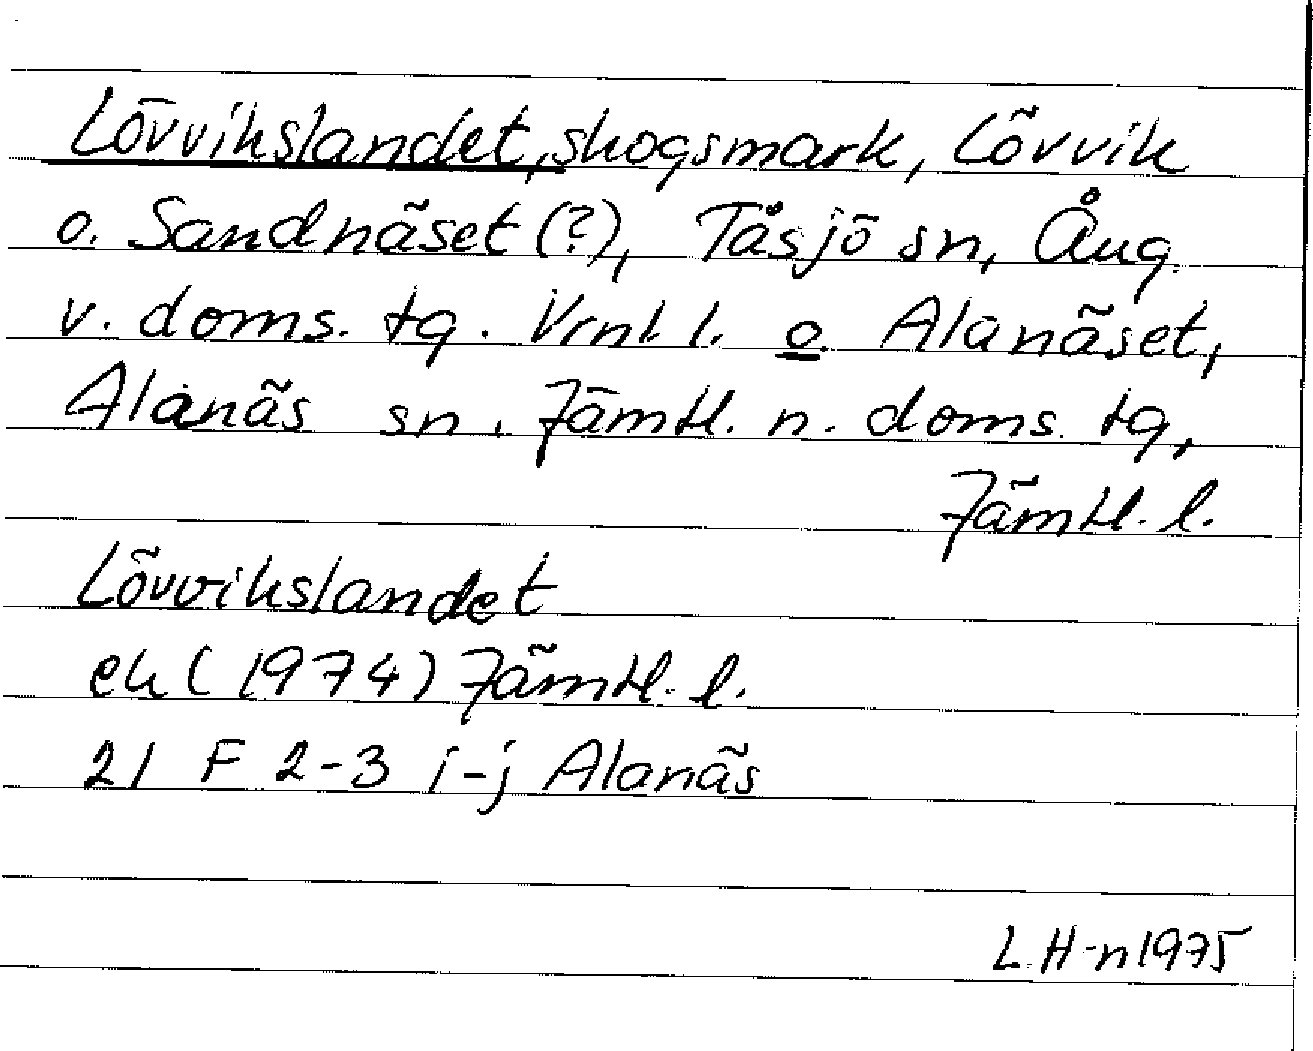 Lövvikslandet, skogsmark, Lövvik
o. Sandnäset (?), Tåsjö sn, Ång.
v. doms. tg. Vrnl l. o. Alanäset,
Alanäs sn. Jämtl. n. doms. tg,
Jämtl. l.
Lövvikslandet
ek (1974) Jämtl. l.
21 F 2-3 i-j Alanäs
L H-n 1975